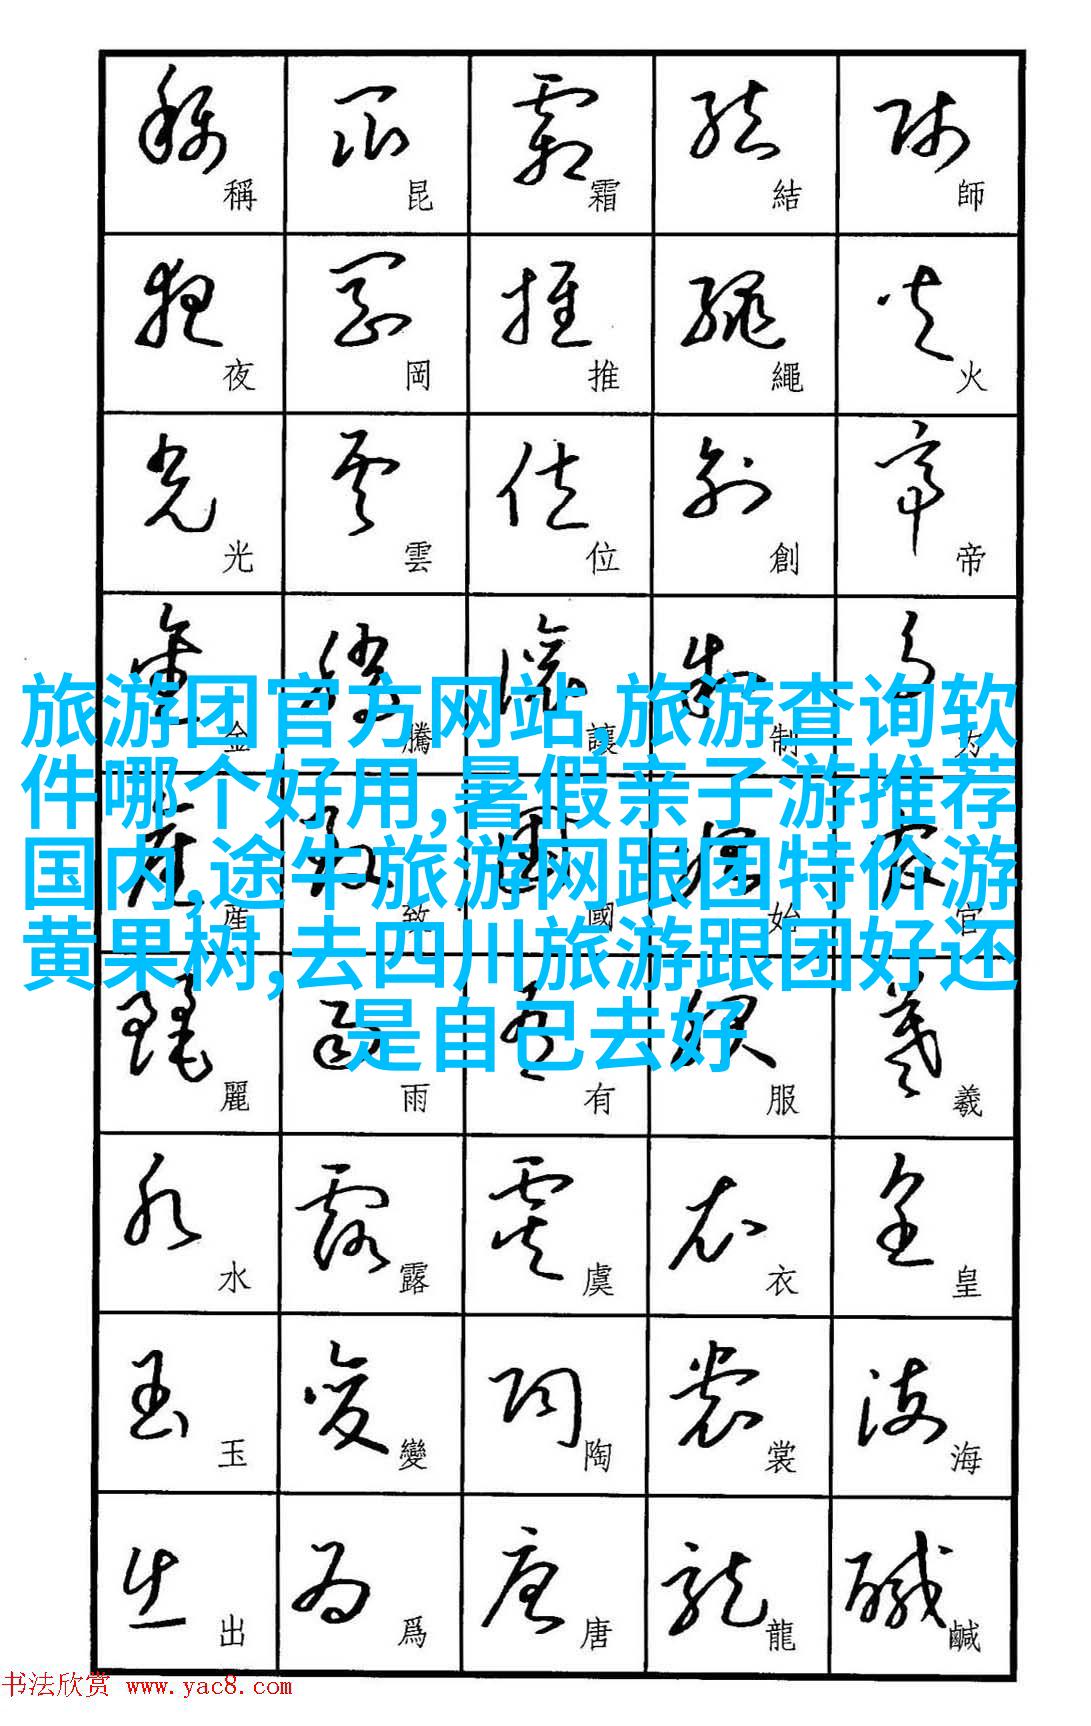 稱 昆 霜 結 師
夜 岡 推 繩 火
光 雲 位 創 帝
金 騰 讓 制
旅游团官方网站,旅游查询软
件哪个好用,暑假亲子游推荐
国内,途牛旅游网跟团特价游
黄果树,去四川旅游跟团好还
是自己去好
産 致 國 始 官
麗 雨 有 服 羲
水 露 虞 衣 皇
玉 變 陶 裳 海
出 爲 唐 龍 鹹
书法欣赏 www.yac8.com